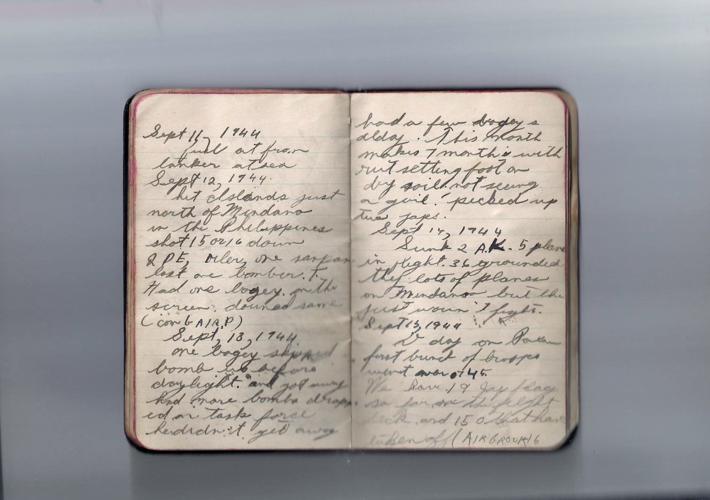 Sept 11, 1944
fuel at from
tanker at sea
Sept 12, 1944.
hit Islands just
north of Mindano
in the Philippines
shot 15 or 16 down
2 P.E, oiler, one sanpan
lost one bomber. T.
Had one bogey on the
screen. downed same
(comb AIR.P)
Sept, 13, 1944
one bogey
bomb us before
daylight. and got away
had more bombs dropp
ed on task force
he didn't get away
had a few bogeys
alday. This month
makes 7 months with
out setting foot on
dry soil. not seeing
a girl. picked up
two japs.
Sept 14, 1944
Sunk 2 A.K. 5 plane
in flight. 36 grounded
they lots of planes
on Mindano but the
just woun't fight.
Sept 15, 1944
D day on
first bunch of troops
went over at 45
We have 19 Jap flags
so far on the flight
deck. and 150 that have
taken off (AIR GROUP 16